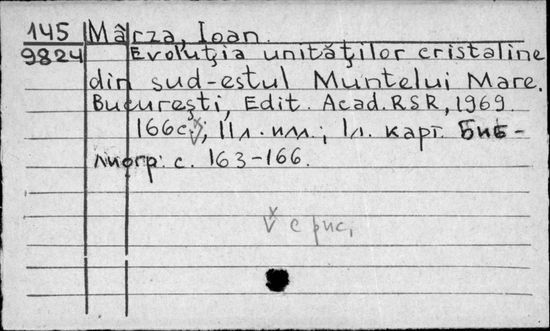 145 Mârza, Ioan.
9824 Evoluţia unităţilor cristaline
din sud-estul Muntelui Mare.
Bucureşti, Edit. Acad. RSR, 1969.
166с., 11л. илл.; 1л. карт. Биб-
лиогр: с. 163-166.
V с рис.